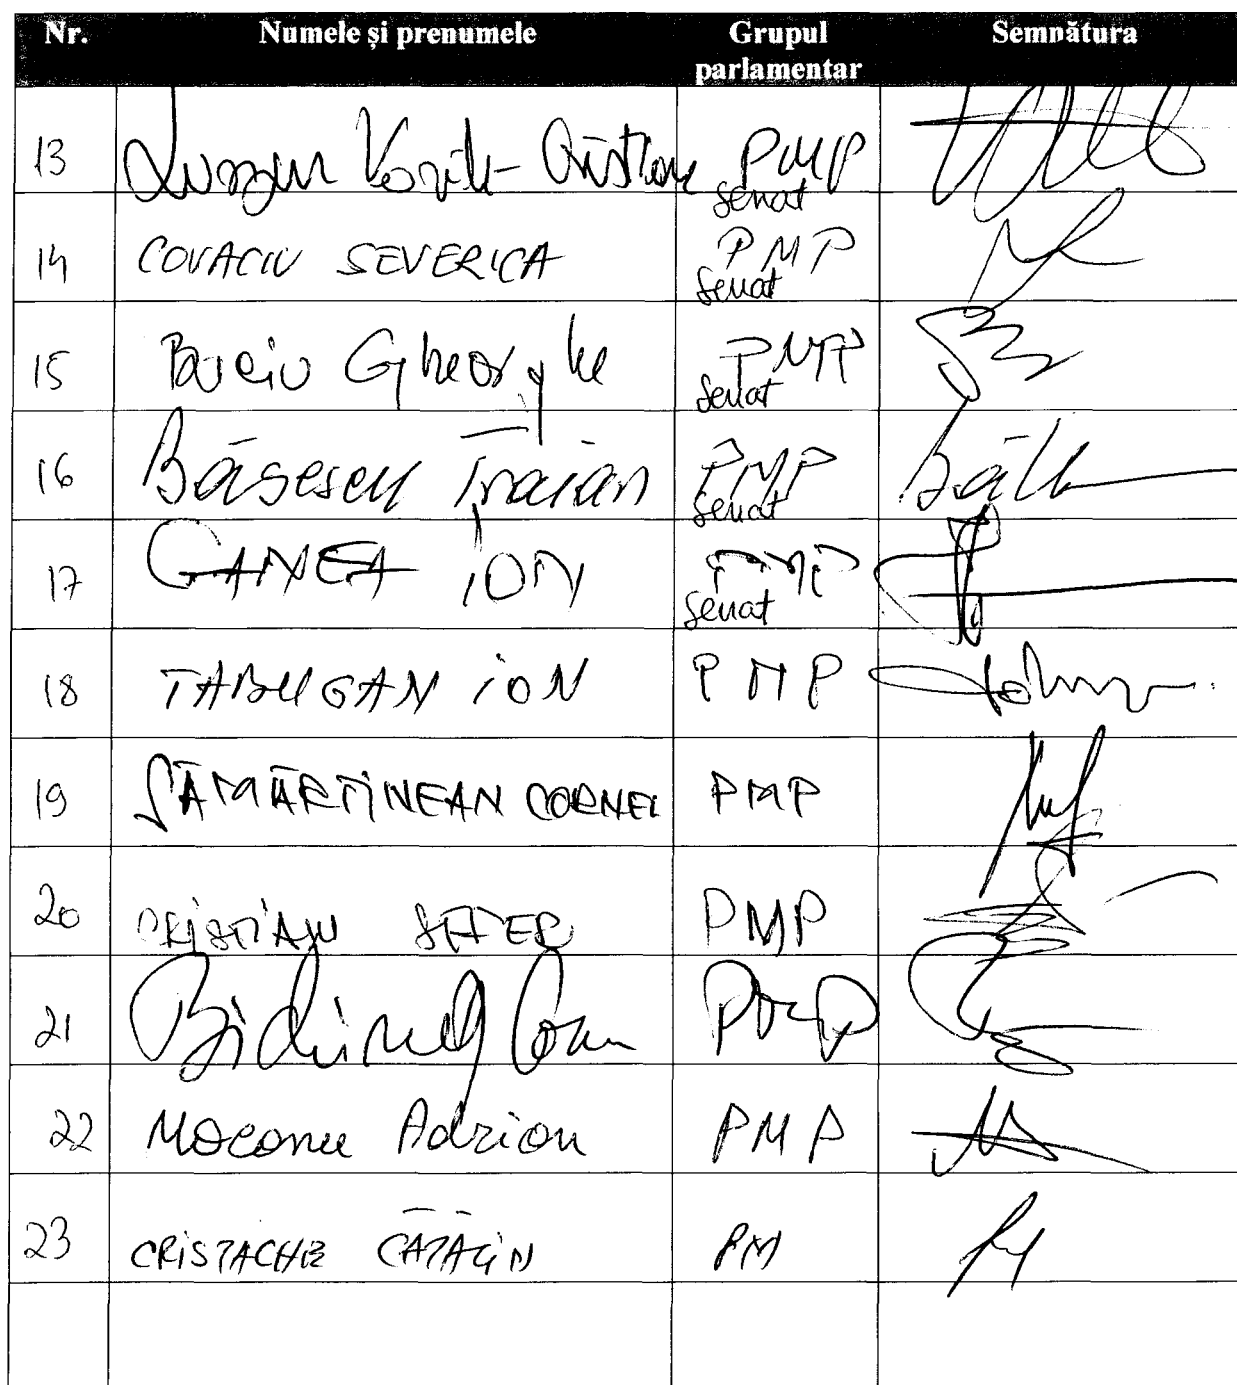 Nr. Numele și prenumele Grupul parlamentar Semnătura
13 Lungu Vasile-Cristian PMP senat
14 COVACIU SEVERICA PMP senat
15 Baciu Gheorghe PMP senat
16 Băsescu Traian PMP senat
17 GANEA ION PMP senat
18 TABUGAN ION PMP
19 SĂMĂRTINEAN CORNEL PMP
20 CRISTIAN SEFER PMP
21 PMP
22 Mocanu Adrian PMP
23 CRISTACHE CĂTĂLIN PM